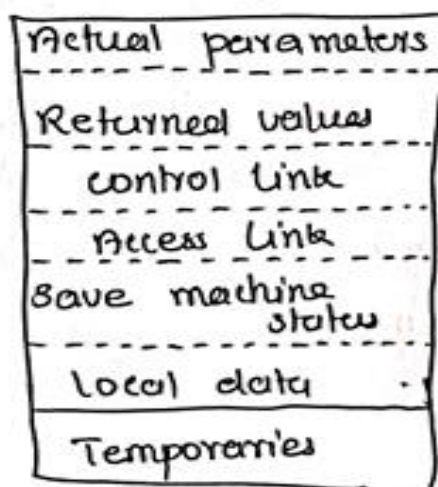 Actual parameters
Returned values
control link
Access link
Save machine
status
local data
Temporaries